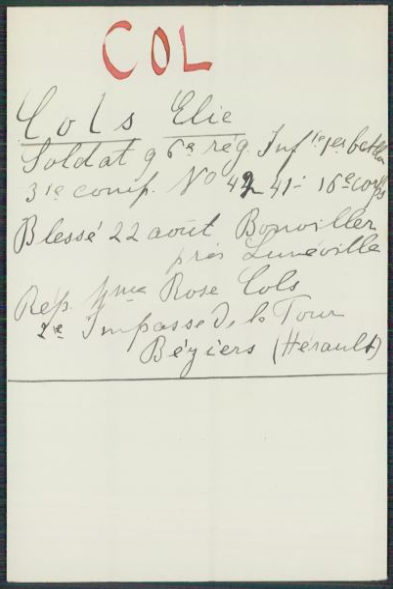 COL
Cols Elie
Soldat 96e rég. Inftie 1er batllon
3ie comp. No 4241 - 16e corps
Blessé 22 août Bonviller
près Lunéville
Rép. Mme Rose Cols
2e Impasse de la Tour
Béziers (Hérault)